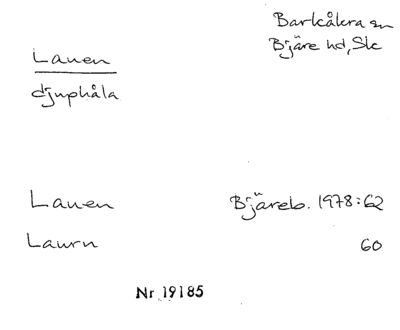 Barkåkra sn
Bjäre hd, Sk
Lauen
djuphåla
Lauen Bjäreb. 1978:62
Laurn 60
Nr 19185